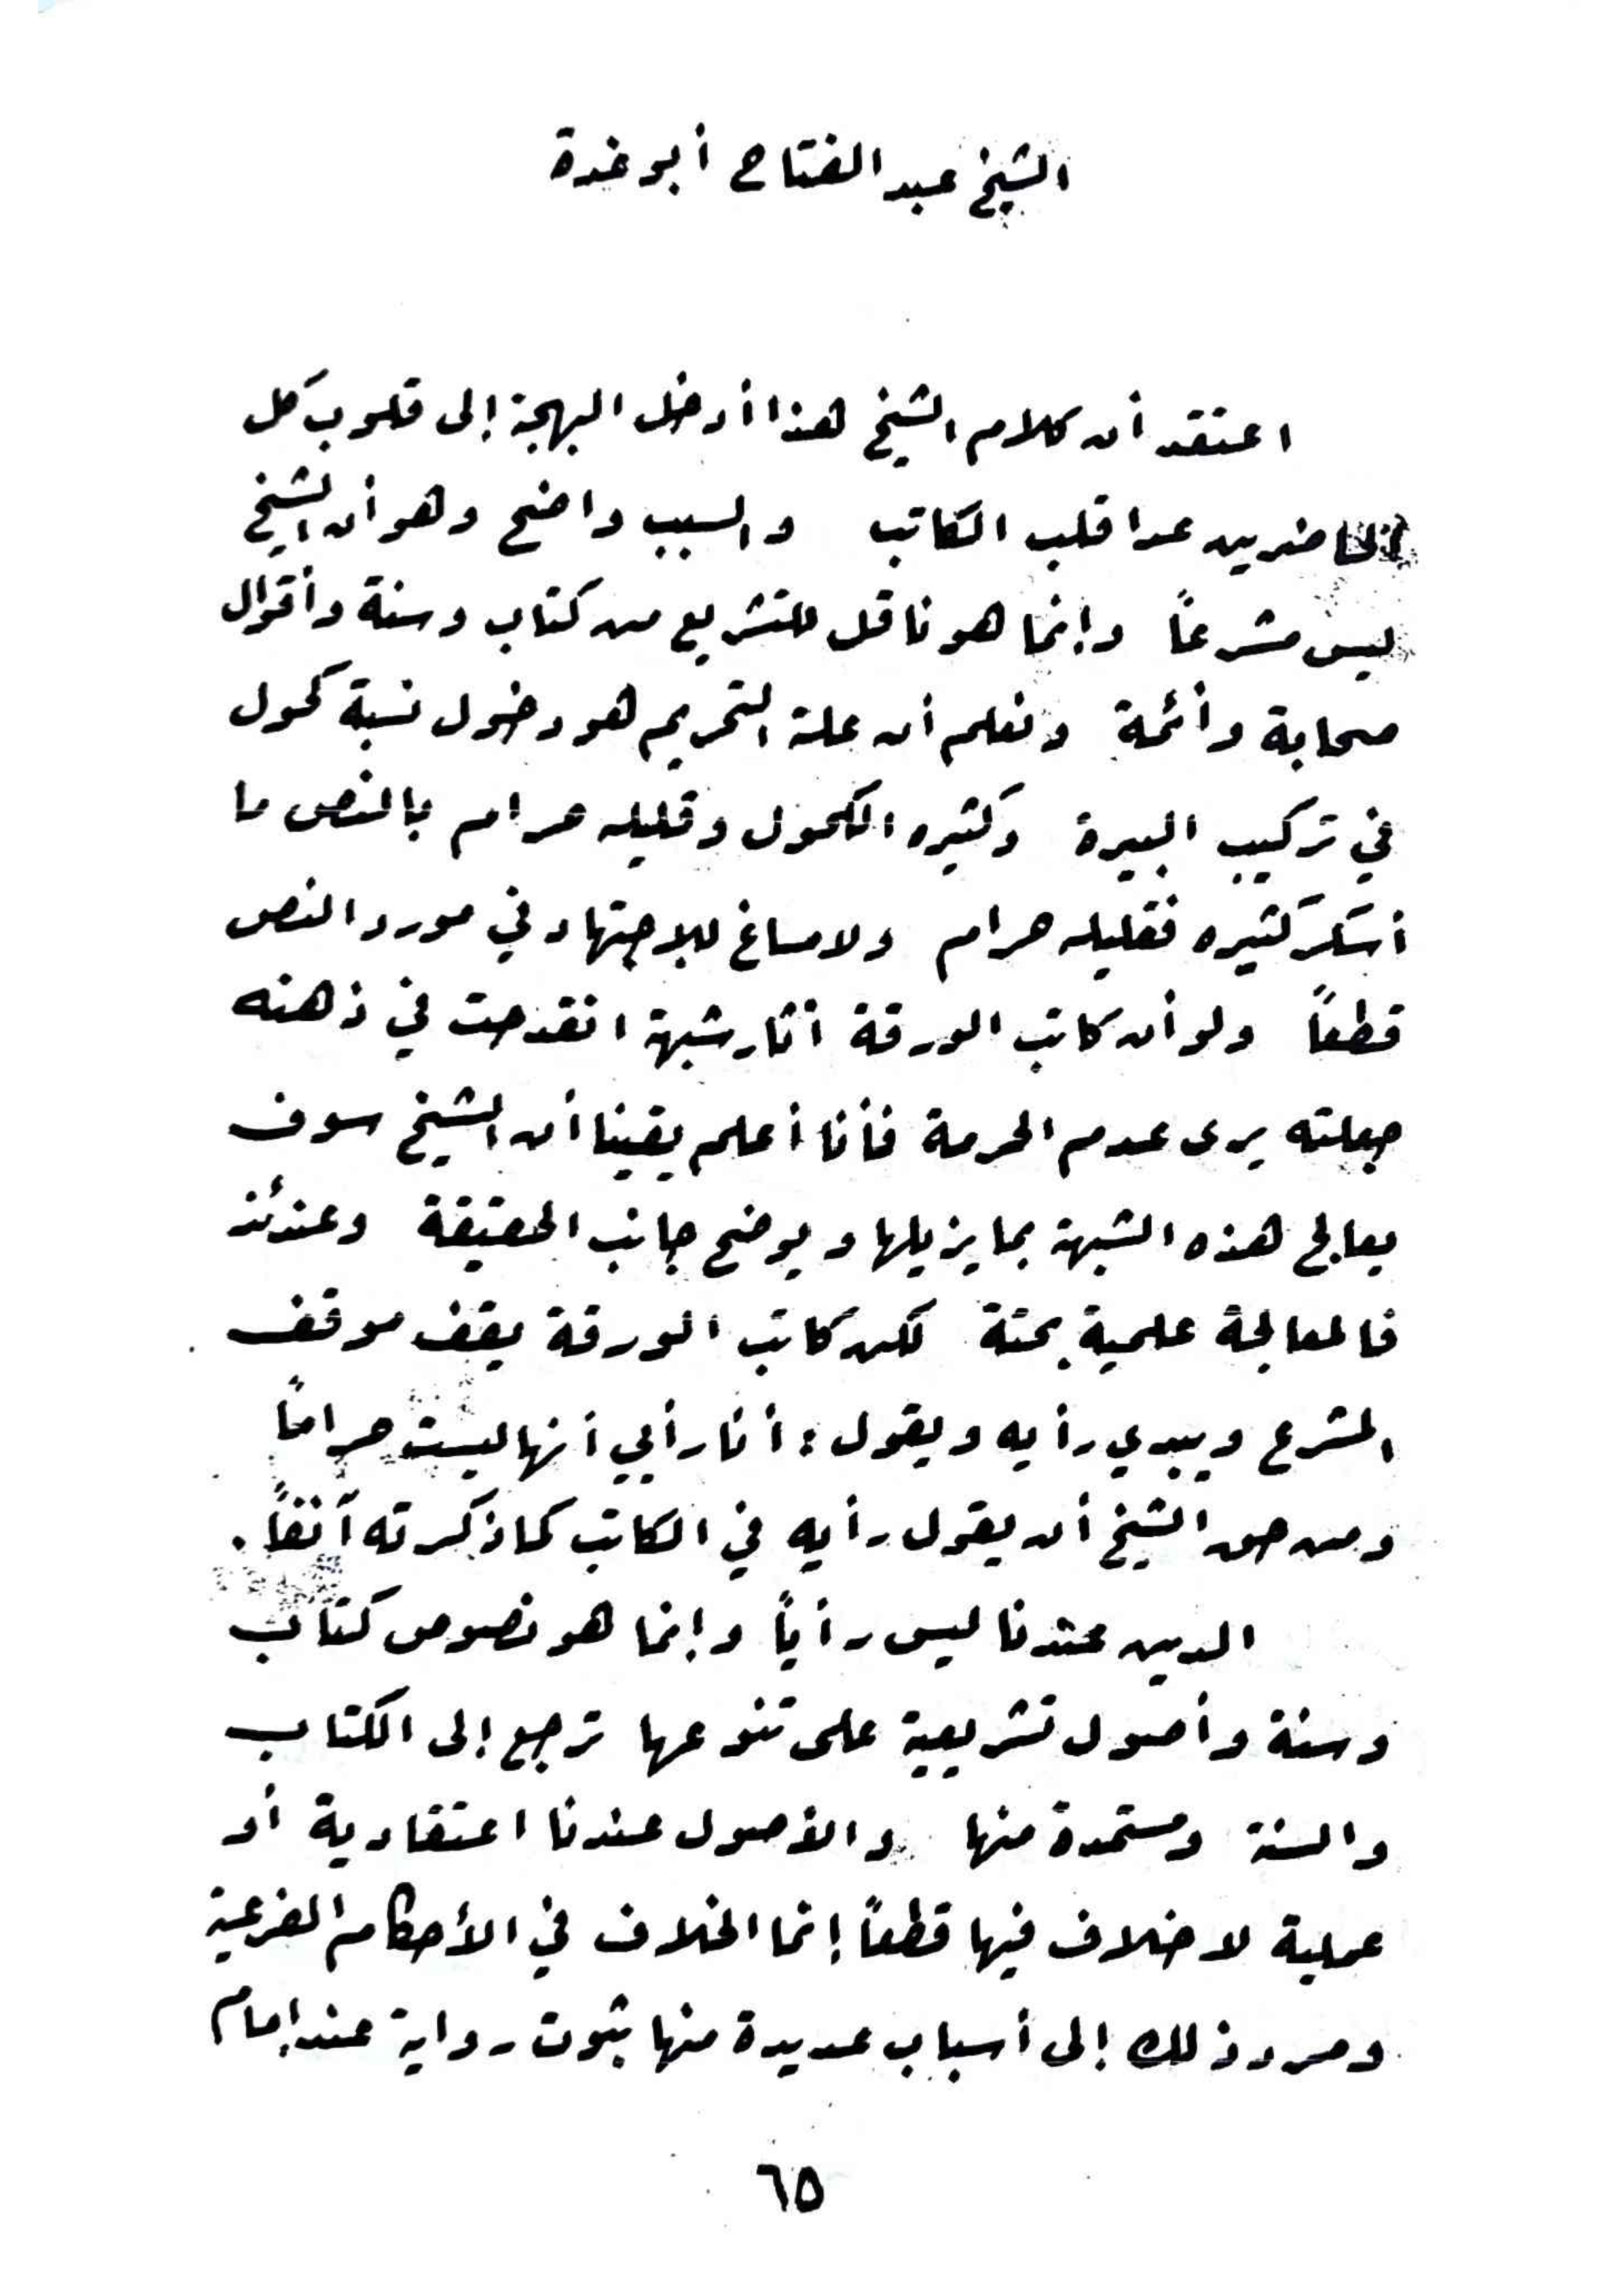 الشيخ عبد الفتاح أبو غدة
اعتقد أن كلام الشيخ هذا أدخل البهجة إلى قلوب كل
الحاضرين عدا قلب الكاتب والسبب واضح وهو أن الشيخ
ليس مشرعاً وإنما هو ناقل للتشريع من كتاب وسنة وأقوال
صحابة وأئمة ونعلم أن علة التحريم هو دخول نسبة كحول
في تركيب البيرة وكثيره الكحول وقليله حرام بالنص ما
أسكر كثيره فقليله حرام ولا مساغ للاجتهاد في مورد النص
قطعاً ولو أن كاتب الورقة أثار شبهة انقدحت في ذهنه
جعلته يرى عدم الحرمة فأنا أعلم يقينا أن الشيخ سوف
يعالج هذه الشبهة بما يزيلها ويوضح جانب الحقيقة وعندئذ
فالمعالجة علمية بحتة لكن كاتب الورقة يقف موقف
المشرع ويبدي رأيه ويقول : أنا رأيي أنها ليست حراماً
ومن حق الشيخ أن يقول رأيه في الكاتب كما ذكرته آنفاً .
الدين عندنا ليس رأياً وإنما هو نصوص كتاب
وسنة وأصول تشريعية على تنوعها ترجع إلى الكتاب
والسنة ومستمدة منها والأصول عندنا اعتقادية أو
عملية لا خلاف فيها قطعاً إنما الخلاف في الأحكام الفرعية
ومرد ذلك إلى أسباب عديدة منها ثبوت رواية عند إمام
٦٥